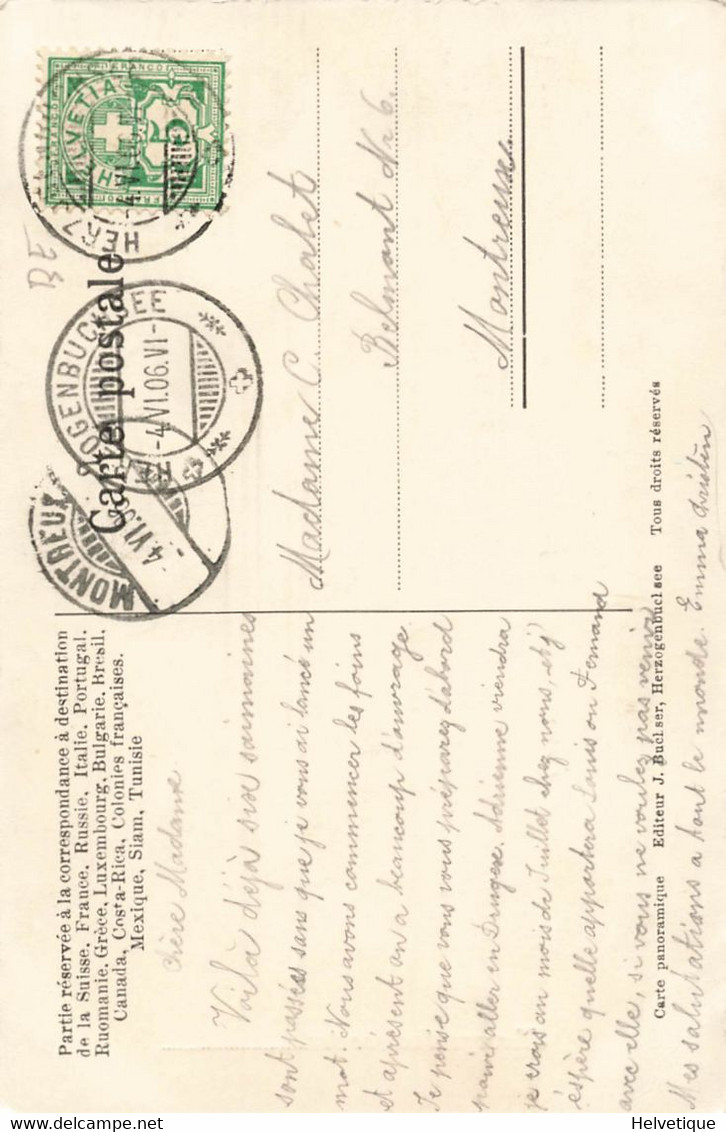 Carte postale
Partie réservée à la correspondance à destination
de la Suisse, France, Russie, Italie, Portugal,
Ruomanie, Grèce, Luxembourg, Bulgarie, Bresil,
Canada, Costa-Rica, Colonies françaises,
Mexique, Siam, Tunisie
chère Madame
Voilà déjà six saimaines
sont passées sans que je vous ai lancé un
mot. Nous avons commencer les foins
et aprèsent on a beaucoup d'ouvrage.
Je pense que vous vous préparez d'abord
aller en Adrienne viendra
je crois au mois de Juillet chez nous, et j'
éspère quelle apportera Louis ou Fernand
avec elle, si vous ne voulez pas venir
Mes salutations a tout le monde. Emma
Madame C. Chalet
Belmont Nr 6.
Montreux
FRANCO
HELVETIA
5
HERZ
-4.VI.
HERZOGENBUCHSEE
-4.VI.06.VI-
MONTREUX
-4.VI.
BE
Carte panoramique Editeur J. Buchser, Herzogenbuchsee Tous droits réservés
Helvetique